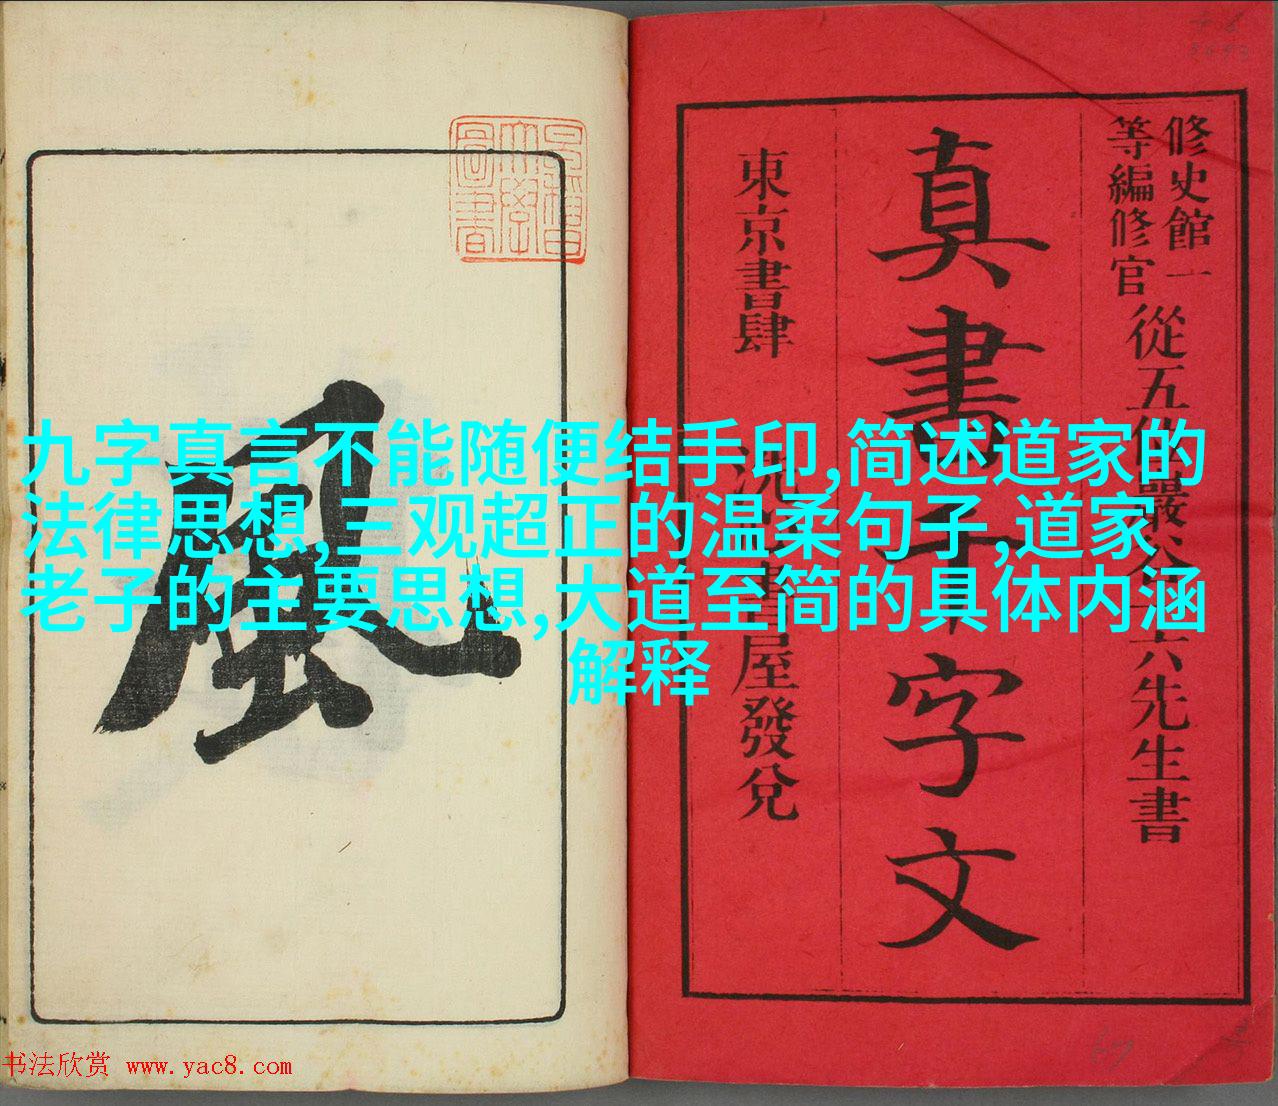 修史館一
等編修官
從五位巖谷一六先生書
真書千字文
東京書肆
屋發兌
風
九字真言不能随便结手印,简述道家的
法律思想,三观超正的温柔句子,道家
老子的主要思想,大道至简的具体内涵
解释
书法欣赏 www.yac8.com